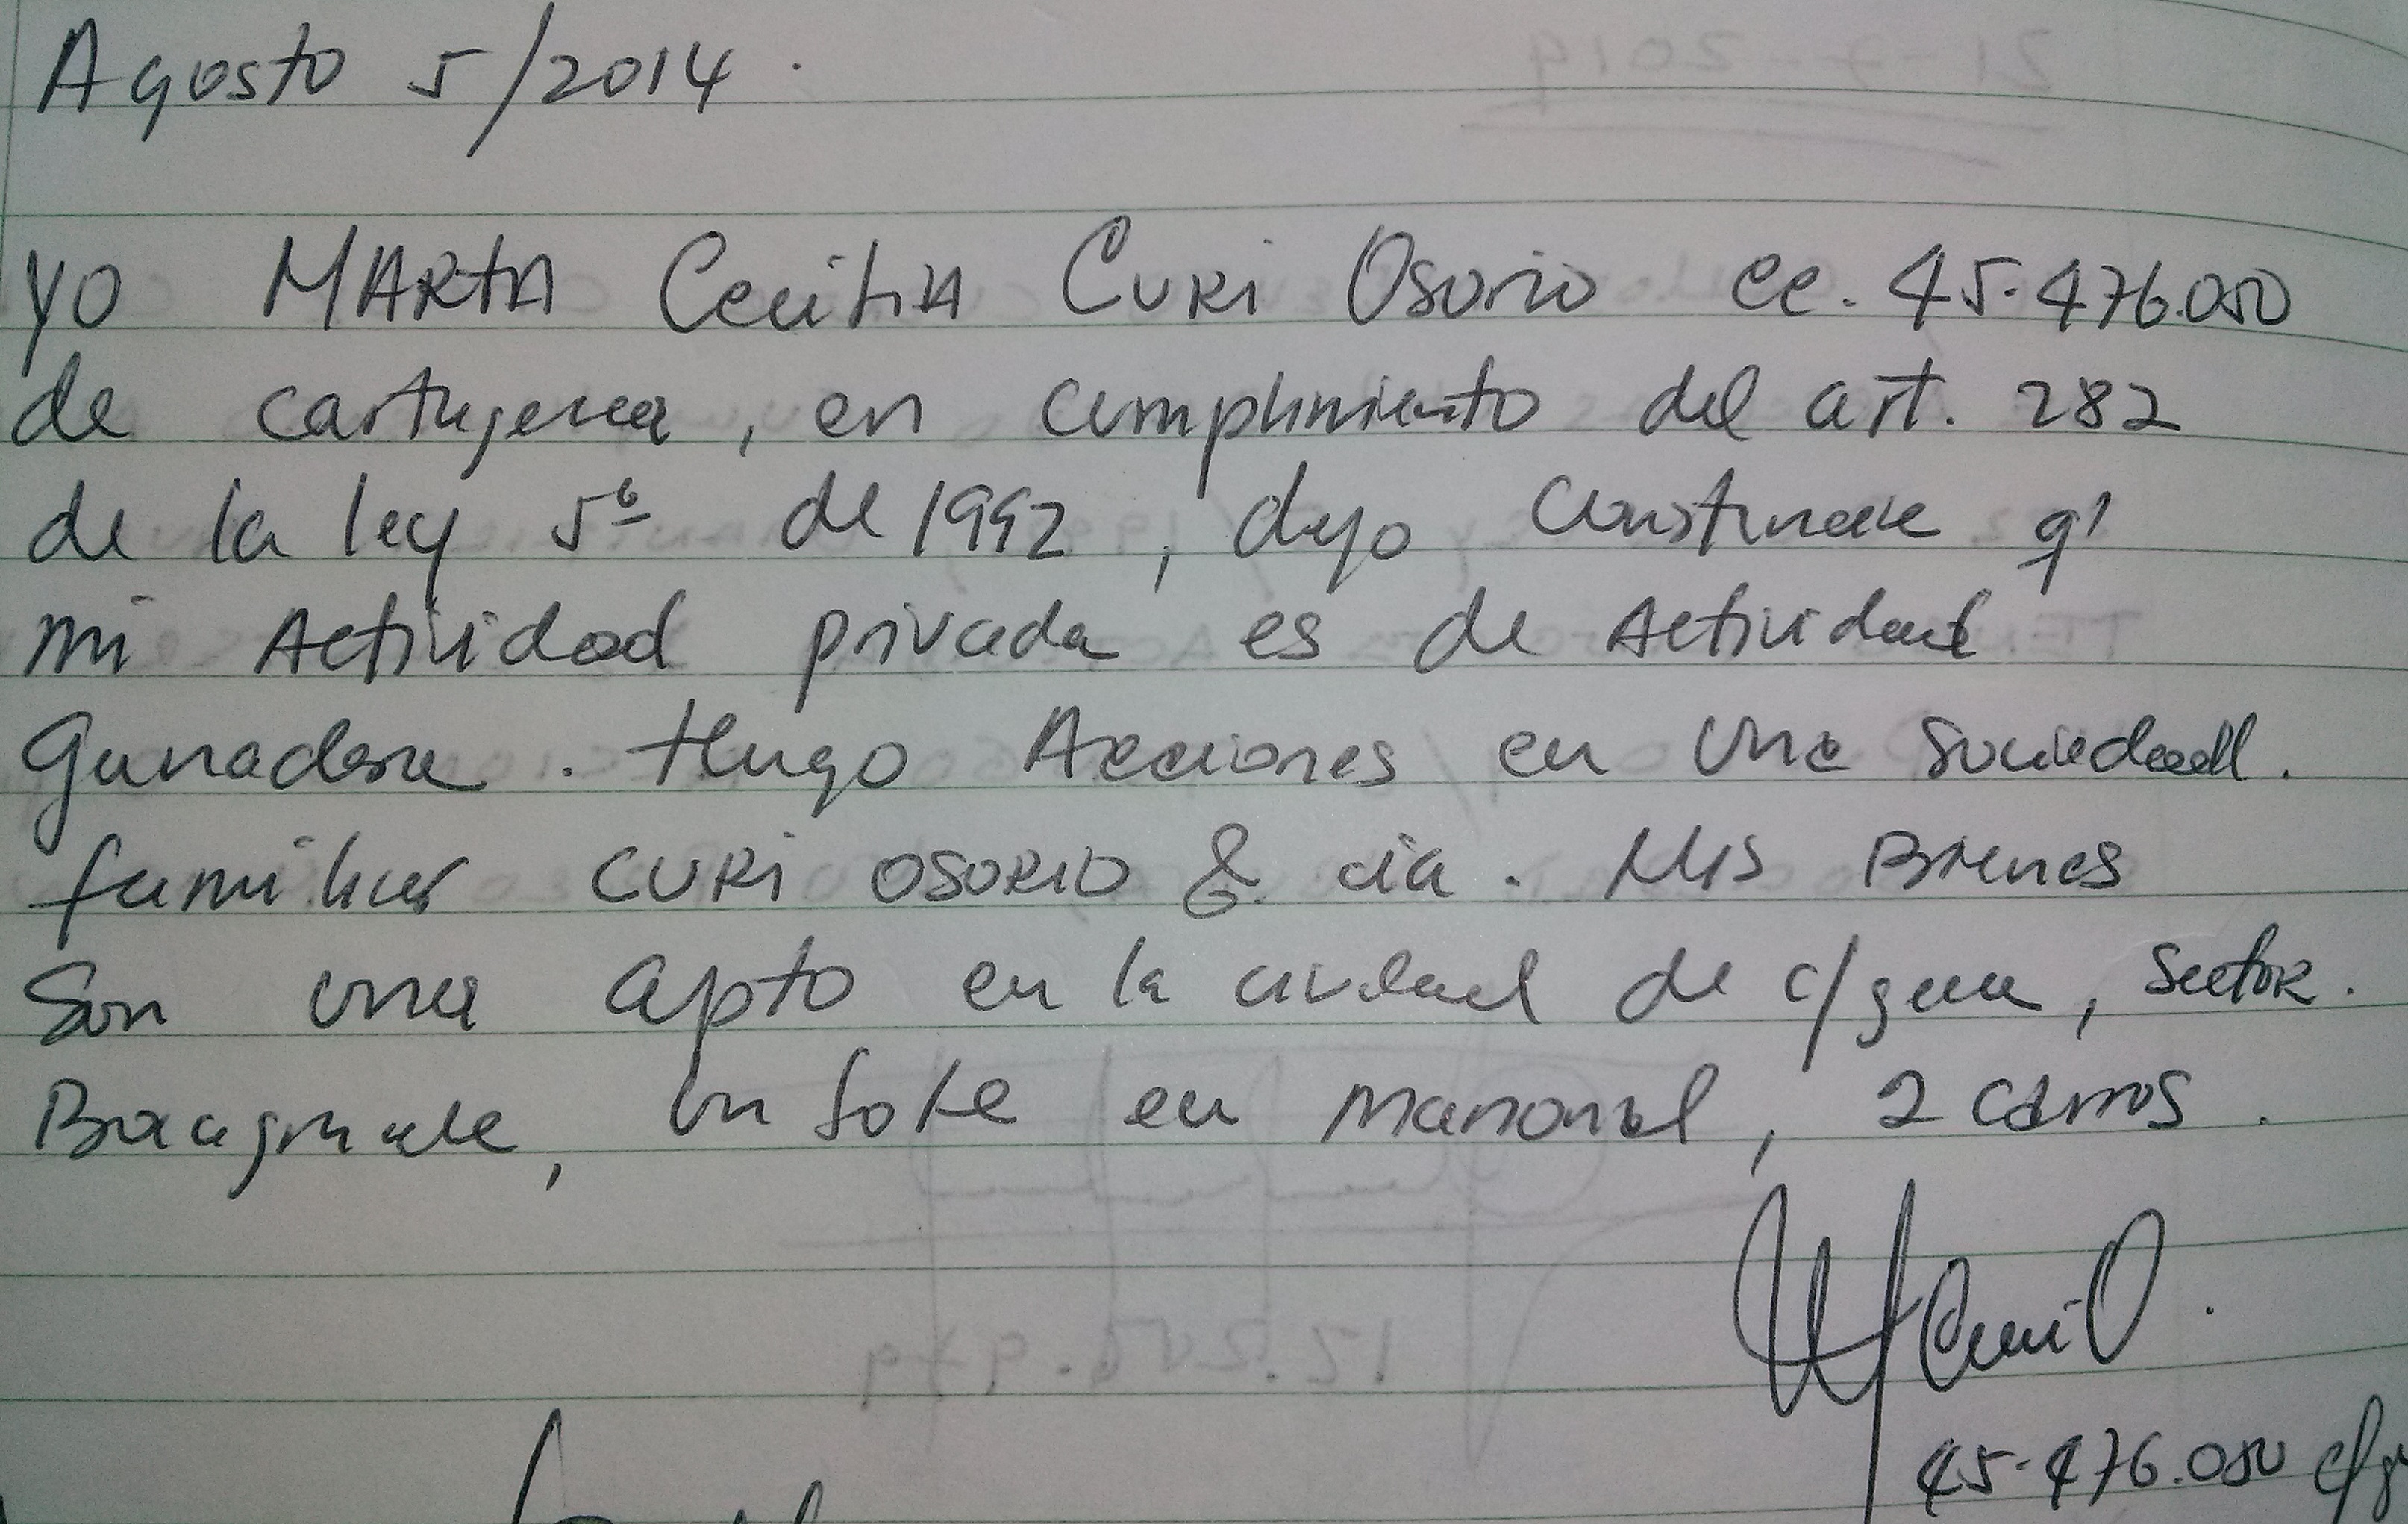 Agosto 5/2014.
Yo MARTA Cecilia CURi Osorio cc. 45.476.050
de cartagena, en cumplimiento del art. 282
de la ley 5ª de 1992, dejo constancia q'
mi Actividad privada es de Actividad
Ganadera. tengo Acciones en una sociedad.
familiar CURi OSORIO & cia. Mis Bienes
Son una apto en la ciudad de c/gena, sector.
Bocagrande, un lote en mamonal, 2 carros.
45.476.050 c/g